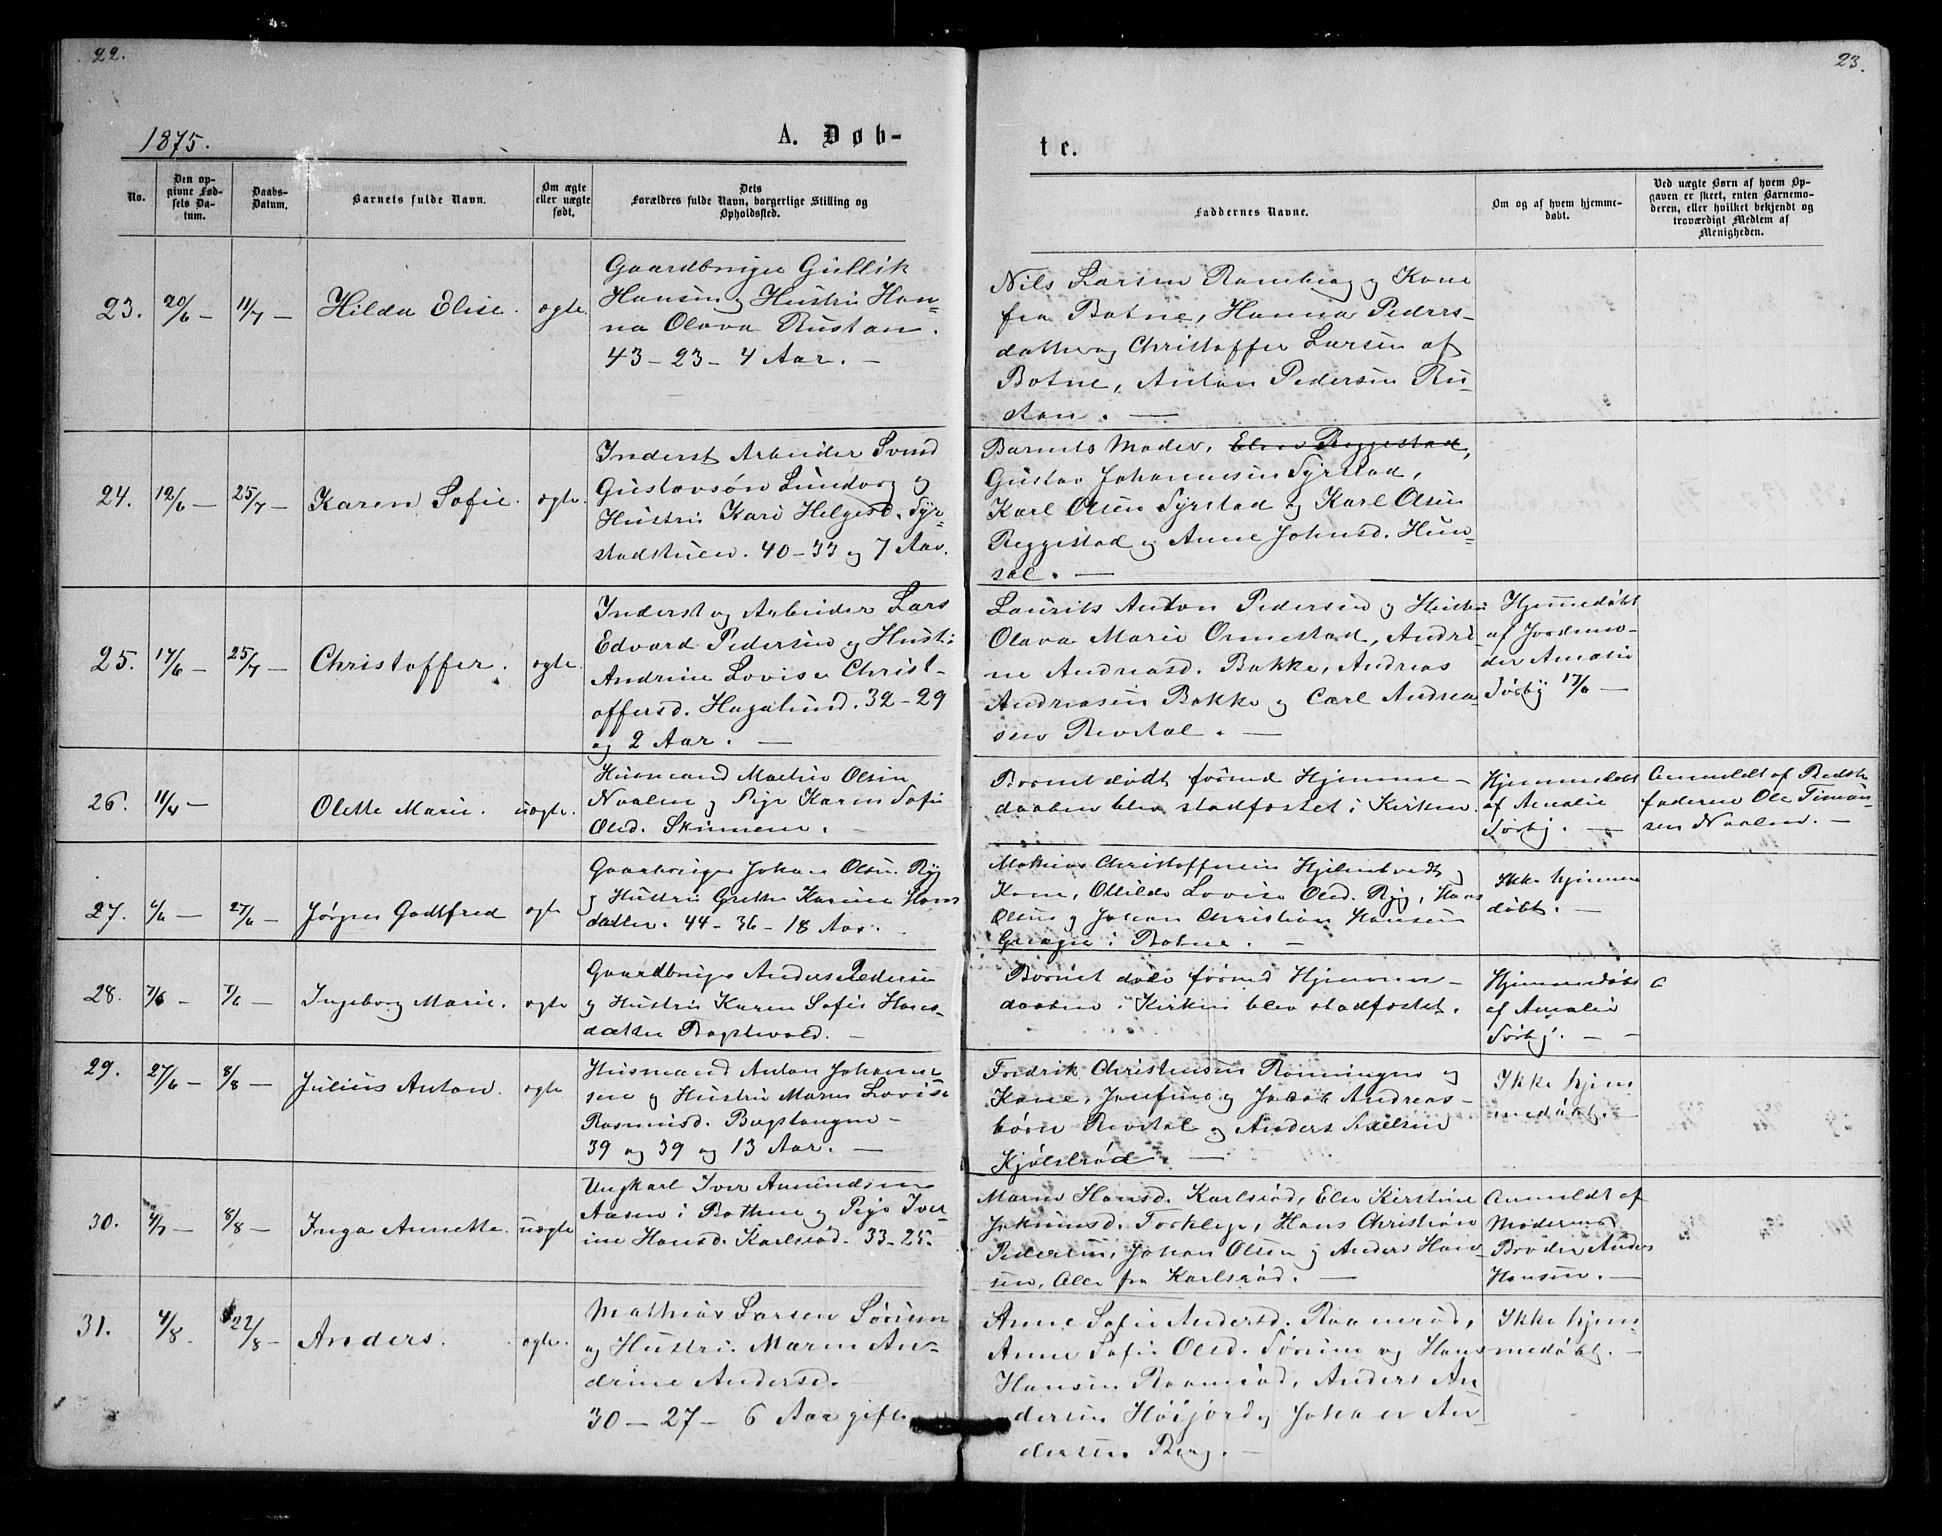 22.
23.
1875.
A. Døb-
te.
No.
Den op-
givne Fød-
sels Da-
tum.
Daabs-
Datum.
Barnets fulde Navn.
Om ægte
eller uægte
født.
Dets
Forældres fulde Navn, borgerlige Stilling og
Opholdssted.
Faddernes Navne.
Om og af hvem hjemme-
døbt.
Ved uægte Børn af hvem Op-
gaven er skeet, enten Barnemo-
deren, eller hvilket bekjendt og
troværdigt Medlem af
Menigheden.
23. 20/6 — 11/7 — Hilda Elise. ægte
Gaardbruger Gullik
Hansen og Hustru Han-
na Olava Rustan.
43 - 23 - 4 Aar. —
Nils Larsen Ramberg og Kone
fra Botne, Hanna Peders-
datter og Christoffer Larsen af
Botne, Anton Pedersen Ru-
stan. —
24. 12/6 — 25/7 — Karen Sofie. ægte.
Inderst Arbeider Svend
Gustavsøn Lundberg og
Hustru Kari Helgesd. Syr-
stadstuen. 40 - 33 og 7 Aar.
Barnets Moder, Elen Reggestad,
Gustav Johannessen Syrstad,
Karl Olsen Syrstad og Karl Olsen
Reggestad og Anne Johnsd. Hun-
sal. —
25. 17/6 — 25/7 — Christoffer. ægte.
Inderst og Arbeider Lars
Edvard Pedersen og Hustru
Andrine Lovise Christ-
offersd. Hagalund. 32 - 29
og 2 Aar. —
Laurits Anton Pedersen og Hustru
Olava Marie Ormestad, Andri-
ne Andreasd. Bakke, Andreas
Andreasen Bakke og Carl Andrea-
sen Revetal. —
Hjemmedøbt
af Jordmo-
der Amalie
Sørby 17/6 —
26. 11/4 — Olette Marie. uægte.
Husmand Martin Olsen
Naalen og Pige Karen Sofie
Olsd. Skinnene. —
Barnet dødt førend Hjemme-
daaben blev stadfæstet i Kirken.
Hjemmedøbt
af Amalie
Sørby. —
Anmeldt af Bedste-
faderen Ole Simon-
sen Naalen. —
27. 4/6 — 27/6 — Jørgen Godtfred ægte
Gaardbruger Johan Olsen Ryg
og Hustru Grethe Karine Hans-
datter. 44 - 36 - 18 Aar.
Mathias Christoffersen Hjelmtvedt og
Kone, Ottilde Lovise Olsd. Ryg, Hans
Olsen og Johan Christian Hansen
i Botne. —
Ikke hjemme
døbt. —
28. 7/6 — 7/6 — Ingeborg Marie. ægte
Gaardbruger Anders Pedersen
og Hustru Karen Sofie Hans-
datter —
Barnet døde førend Hjemme-
daaben i Kirken blev stadfæstet.
Hjemmedøbt
af Amalie
Sørby. —
29. 27/6 — 8/8 — Julius Anton. ægte
Husmand Anton Johanne-
sen og Hustru Maren Lovise
Rasmusd. —
39 og 39 og 13 Aar. —
Fredrik Christensen Rønningen og
Kone, Josefine og Jacob Andreas-
børn Revetal og Anders Axelsen
Kjølsrød. —
Ikke hjem
medøbt. —
30. 4/7 — 8/8 — Inga Annette. uægte
Ungkarl Iver Amundsen
Aasen i Bothne og Pige Iver-
ine Hansd. Karlsrød. 33 - 25.
Maren Hansd. Karlsrød, Else Kirstine
Hans Christian
Pedersen, Johan Olsen og Anders Han-
sen, Alle fra Karlsrød. —
Anmeldt af
Moderens
Broder Anders
Hansen. —
31. 4/8 — 22/8 — Anders. ægte.
Mathias Larsen Sørum
og Hustru Maren An-
drine Andersd. —
30 — 27 — 6 Aar gifte
Anne Sofie Andersd. Raamerød,
Anne Sofie Olsd. Sørum og Hans
Hansen Raamerød, Anders An-
dersen Høijord og Johan An-
dersen Berg. —
Ikke hjem-
medøbt. —